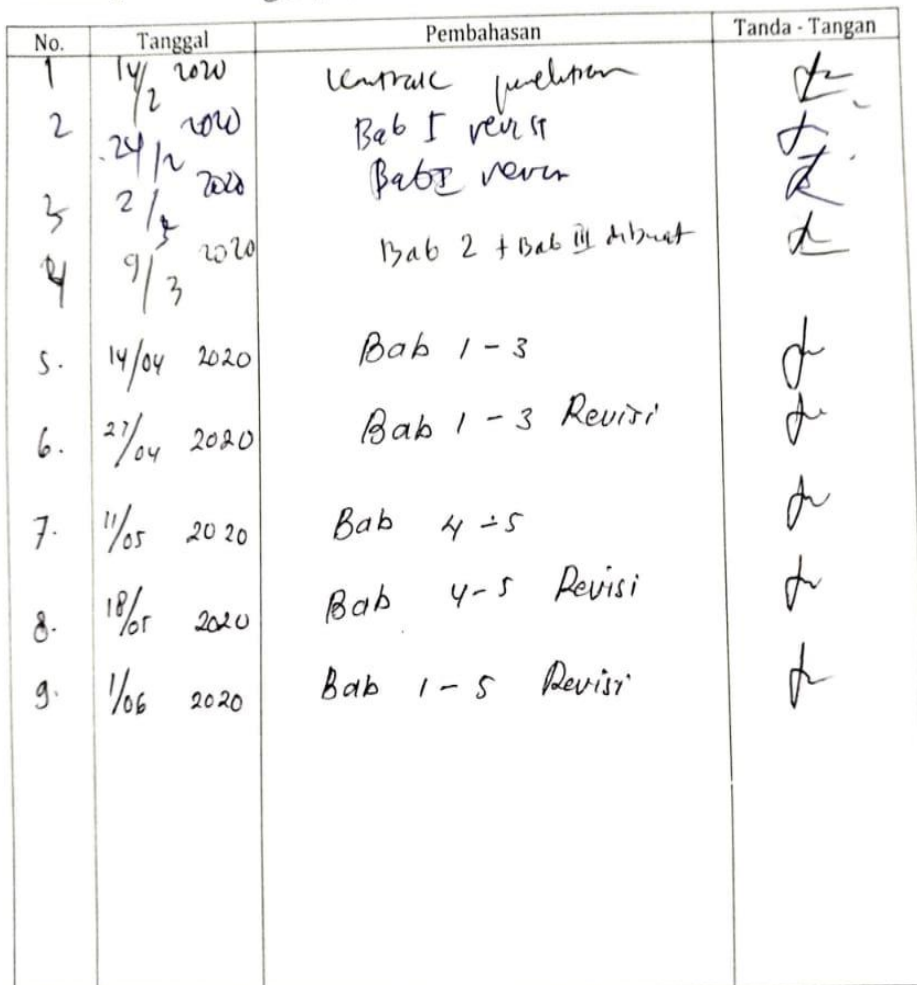 No. Tanggal Pembahasan Tanda - Tangan
1 14/2 2020 Kontrak penelitian
2 24/2 2020 Bab I revisi
3 2/3 2020 Bab I revisi
4 9/3 2020 Bab 2 + Bab III dibuat
5. 14/04 2020 Bab 1 - 3
6. 27/04 2020 Bab 1 - 3 Revisi
7. 11/05 2020 Bab 4 - 5
8. 18/05 2020 Bab 4 - 5 Revisi
9. 1/06 2020 Bab 1 - 5 Revisi